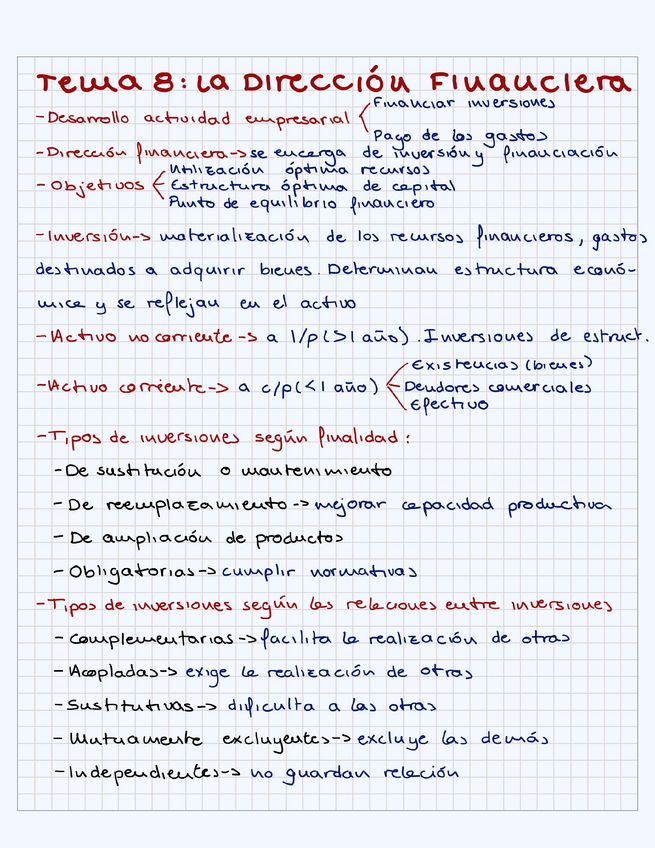 Tema 8: La Dirección Financiera
Financiar inversiones
- Desarrollo actividad empresarial
Pago de los gastos
- Dirección financiera -> se encarga de inversión y financiación
Utilización óptima recursos
- Objetivos Estructura óptima de capital
Punto de equilibrio financiero
- Inversión -> materialización de los recursos financieros, gastos
destinados a adquirir bienes. Determinan estructura econó-
mica y se reflejan en el activo
- Activo no corriente -> a l/p (>1 año). Inversiones de estruct.
Existencias (bienes)
- Activo corriente -> a c/p (<1 año) Deudores comerciales
Efectivo
- Tipos de inversiones según finalidad:
- De sustitución o mantenimiento
- De reemplazamiento -> mejorar capacidad productiva
- De ampliación de productos
- Obligatorias -> cumplir normativas
- Tipos de inversiones según las relaciones entre inversiones
- Complementarias -> facilita la realización de otras
- Acopladas -> exige la realización de otras
- Sustitutivas -> dificulta a las otras
- Mutuamente excluyentes -> excluye las demás
- Independientes -> no guardan relación